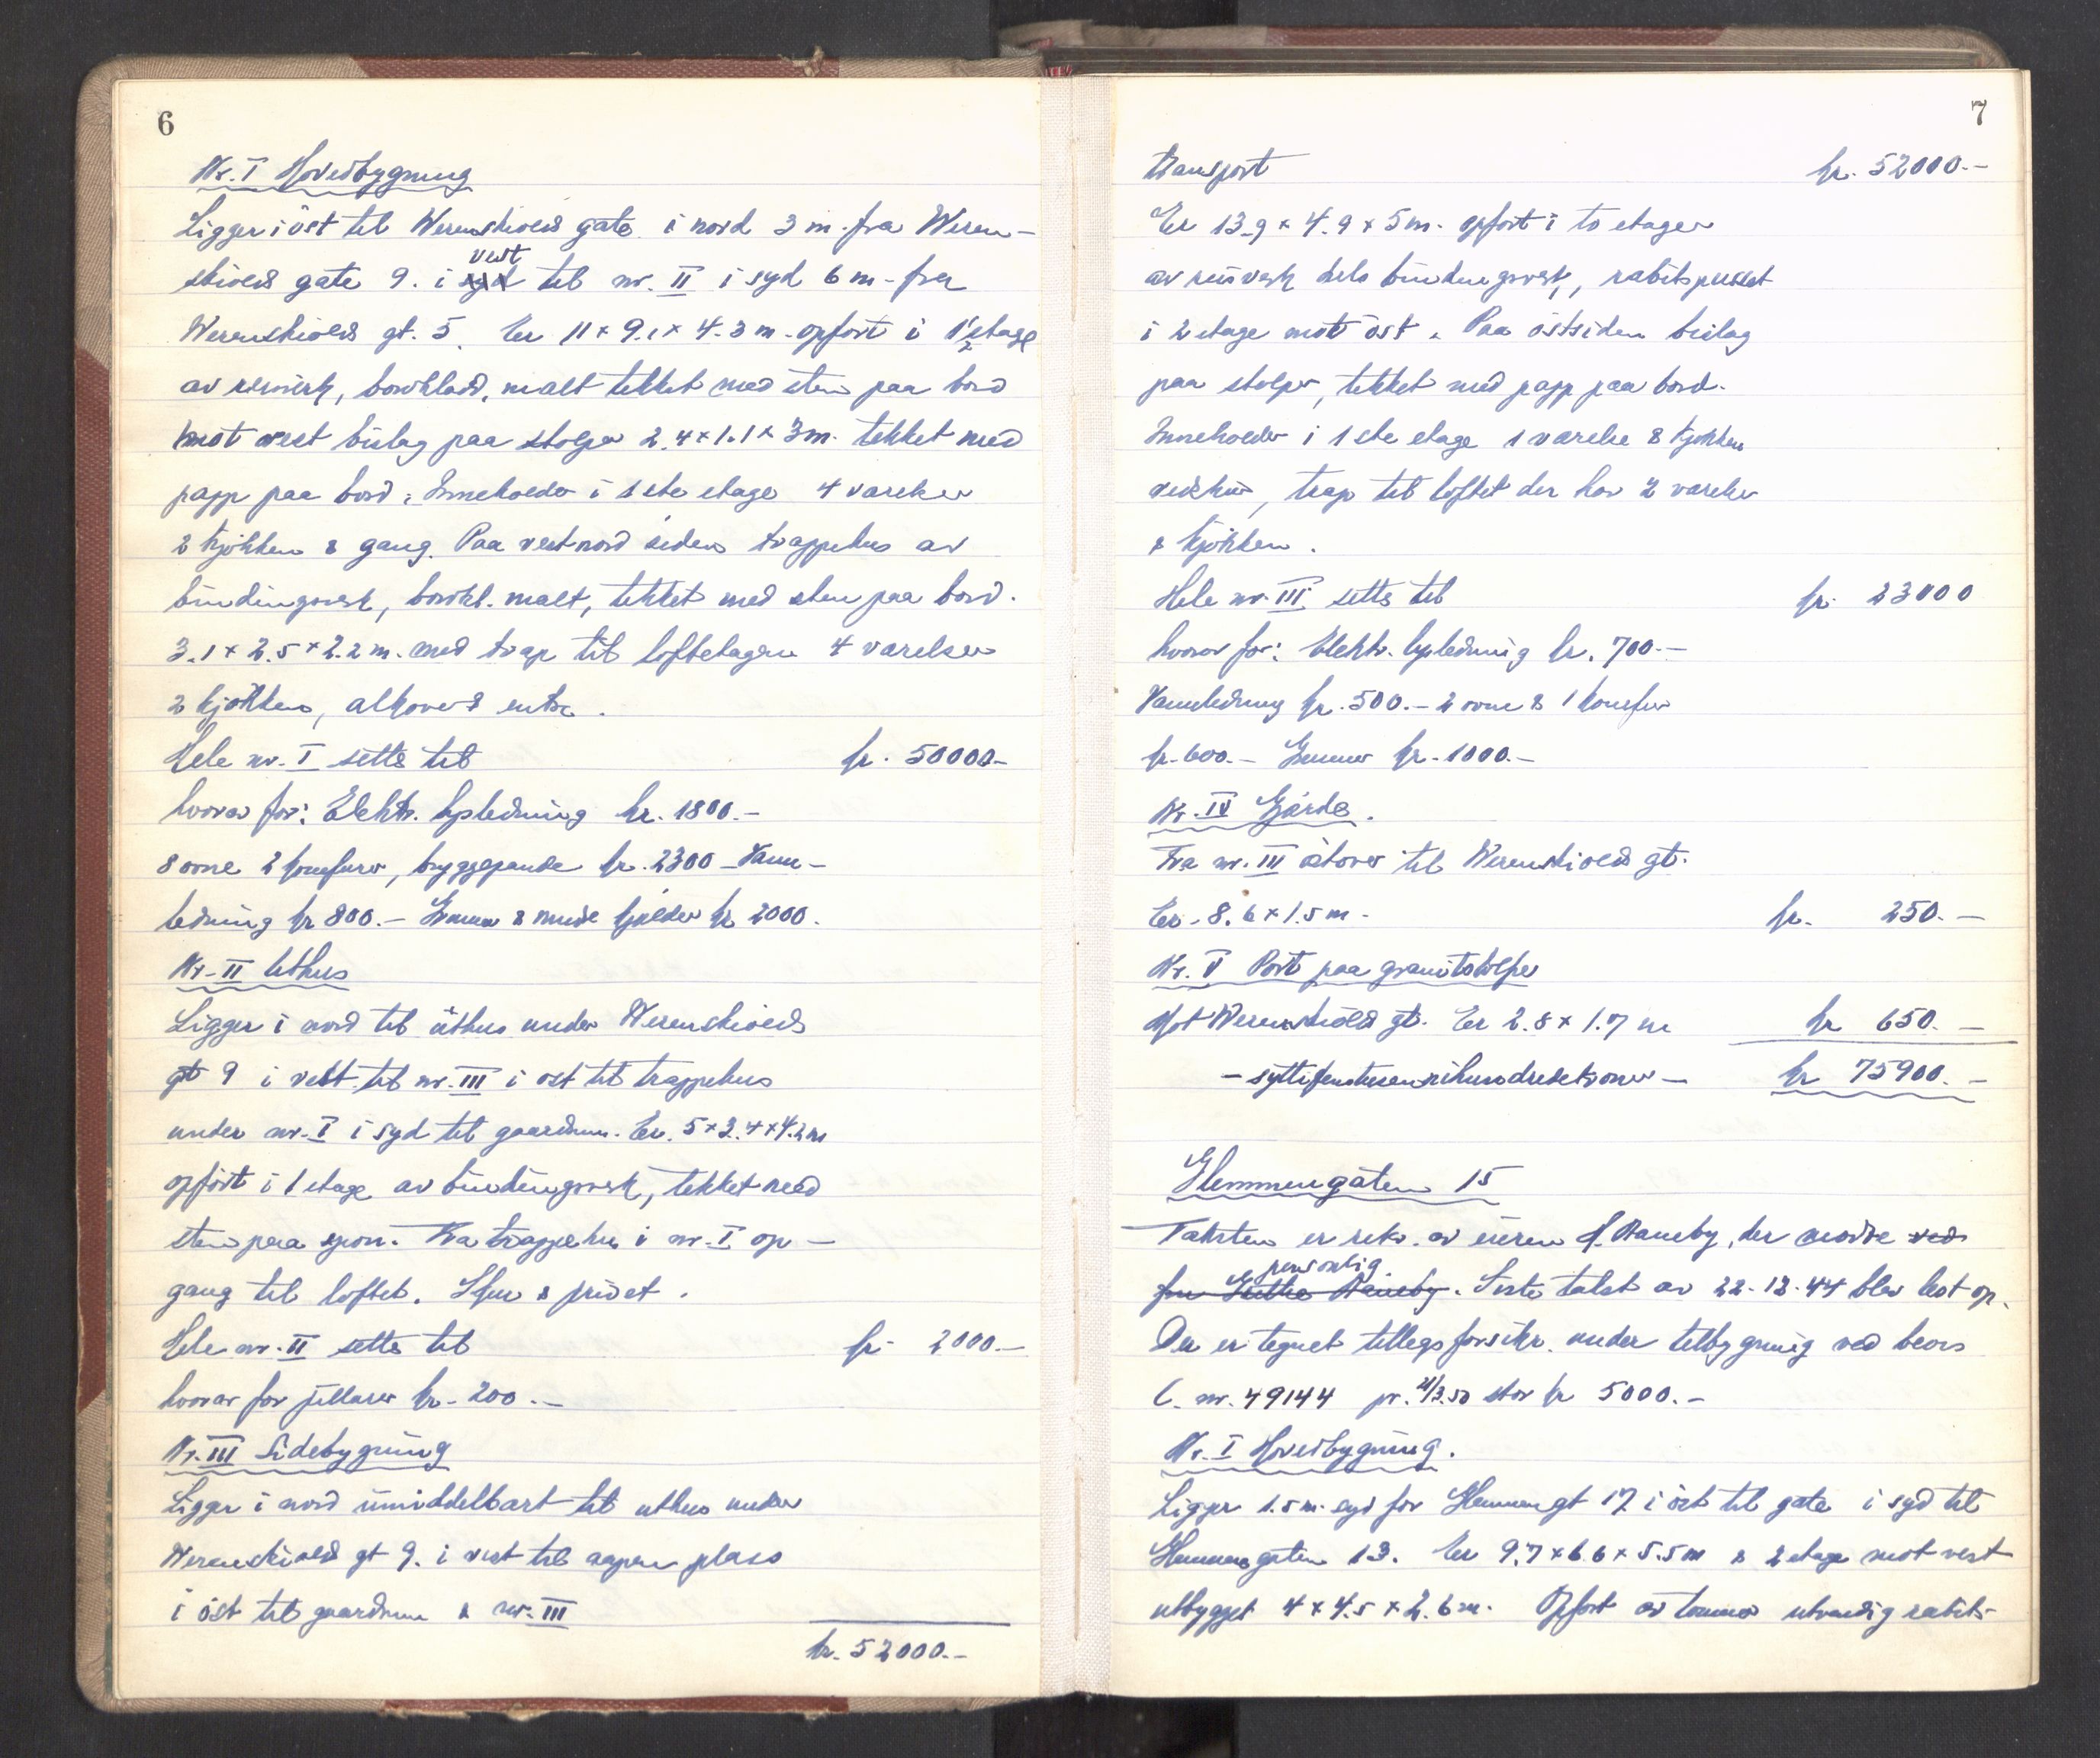 6
Nr. I Hovedbygning
Ligger i öst til Werenskiolds gate i nord 3 m. fra Weren-
skiolds gate 9. i vest til nr. II i syd 6 m. fra
Werenskiolds gt. 5. Er 11 x 9.1 x 4.3 m. opfört i 1 1/2 etage
av reisverk, bordkladd, malt tekket med sten paa bord
mot vest bislag paa stolper 2.4 x 1.1 x 3 m. tekket med
papp paa bord. Inneholder i 1ste etage 4 værelser
2 kjökken & gang. Paa vestnord siden trappehus av
bindingsverk, bordkl. malt, tekket med sten paa bord.
3.1 x 2.5 x 2.2 m. med trap til loftetagen 4 værelser
2 kjökken, alkove & entre.
Hele nr. I settes til kr. 50000.-
hvorav for: Elektr. lysledning kr. 1800.-
8 ovne 2 komfurer, bryggepande kr. 2300 - Vann-
ledning kr 800.- Grunnmur & mude kjelder kr 2000.
Nr. II Uthus
Ligger i nord til uthus under Werenskiolds
gt 9 i vest til nr. III i ost til trappehus
under nr. I i syd til gaardsrum. Er 5 x 3.4 x 4.2 m
opfört i 1 etage av bindingsverk, tekket med
sten paa spon. Fra trappehus i nr. I op-
gang til loftet. Skur & privet.
Hele nr. II settes til kr. 2000.-
hvorav for pillarer kr. 200.-
Nr. III Sidebygning
Ligger i nord umiddelbart til uthus under
Werenskiolds gt 9. i vest til aapen plass
i öst til gaardsrum & nr. III
kr. 52000.-
7
transport kr. 52000.-
Er 13.9 x 4.9 x 5 m. opfört i to etager
av reisverk dels bindingsverk, rabitspusset
i 2 etage mot öst. Paa östsiden bislag
paa stolper, tekket med papp paa bord.
Inneholder i 1ste etage 1 værelse & kjökken
vedskur, trap til loftet der har 2 værelser
& kjökken.
Hele nr. III settes til kr. 23000
hvorav for: Elektr. lysledning kr. 700.-
Vannledning kr. 500.- 2 ovne & 1 komfur
kr. 600.- Grunnmur kr. 1000.-
Nr. IV Gjærde.
Fra nr. III östover til Werenskiolds gt.
Er 8.6 x 1.5 m. kr. 250.-
Nr. V Port paa granitstolper
Mot Werenskiolds gt. Er 2.8 x 1.7 m kr 650.-
- syttifemtusennihundredekroner - kr 75900.-
Glemmengaten 15
Taksten er rekv. av eieren H. Haneby, der mødte ved
personlig
fru Haneby. Siste takst av 22-12-44 blev lest op.
Der er tegnet tillegsforsikr. under tilbygning ved bevis
C. nr. 49144 pr. 21/3.50 stor kr 5000.-
Nr. I Hovedbygning.
Ligger 1.5 m. syd for Glemmengt 17 i öst til gate i syd til
Glemmengaten 13. Er 9.7 x 6.6 x 5.5 m & 2 etage mot vest
utbygget 4 x 4.5 x 2.6 m. Opfört av tömmer utvendig rabits-